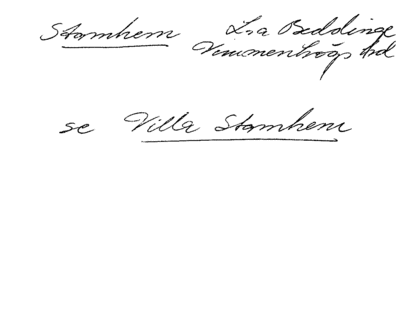 Stamhem L:a Beddinge
Vemmenhögs hd
se Villa Stamhem